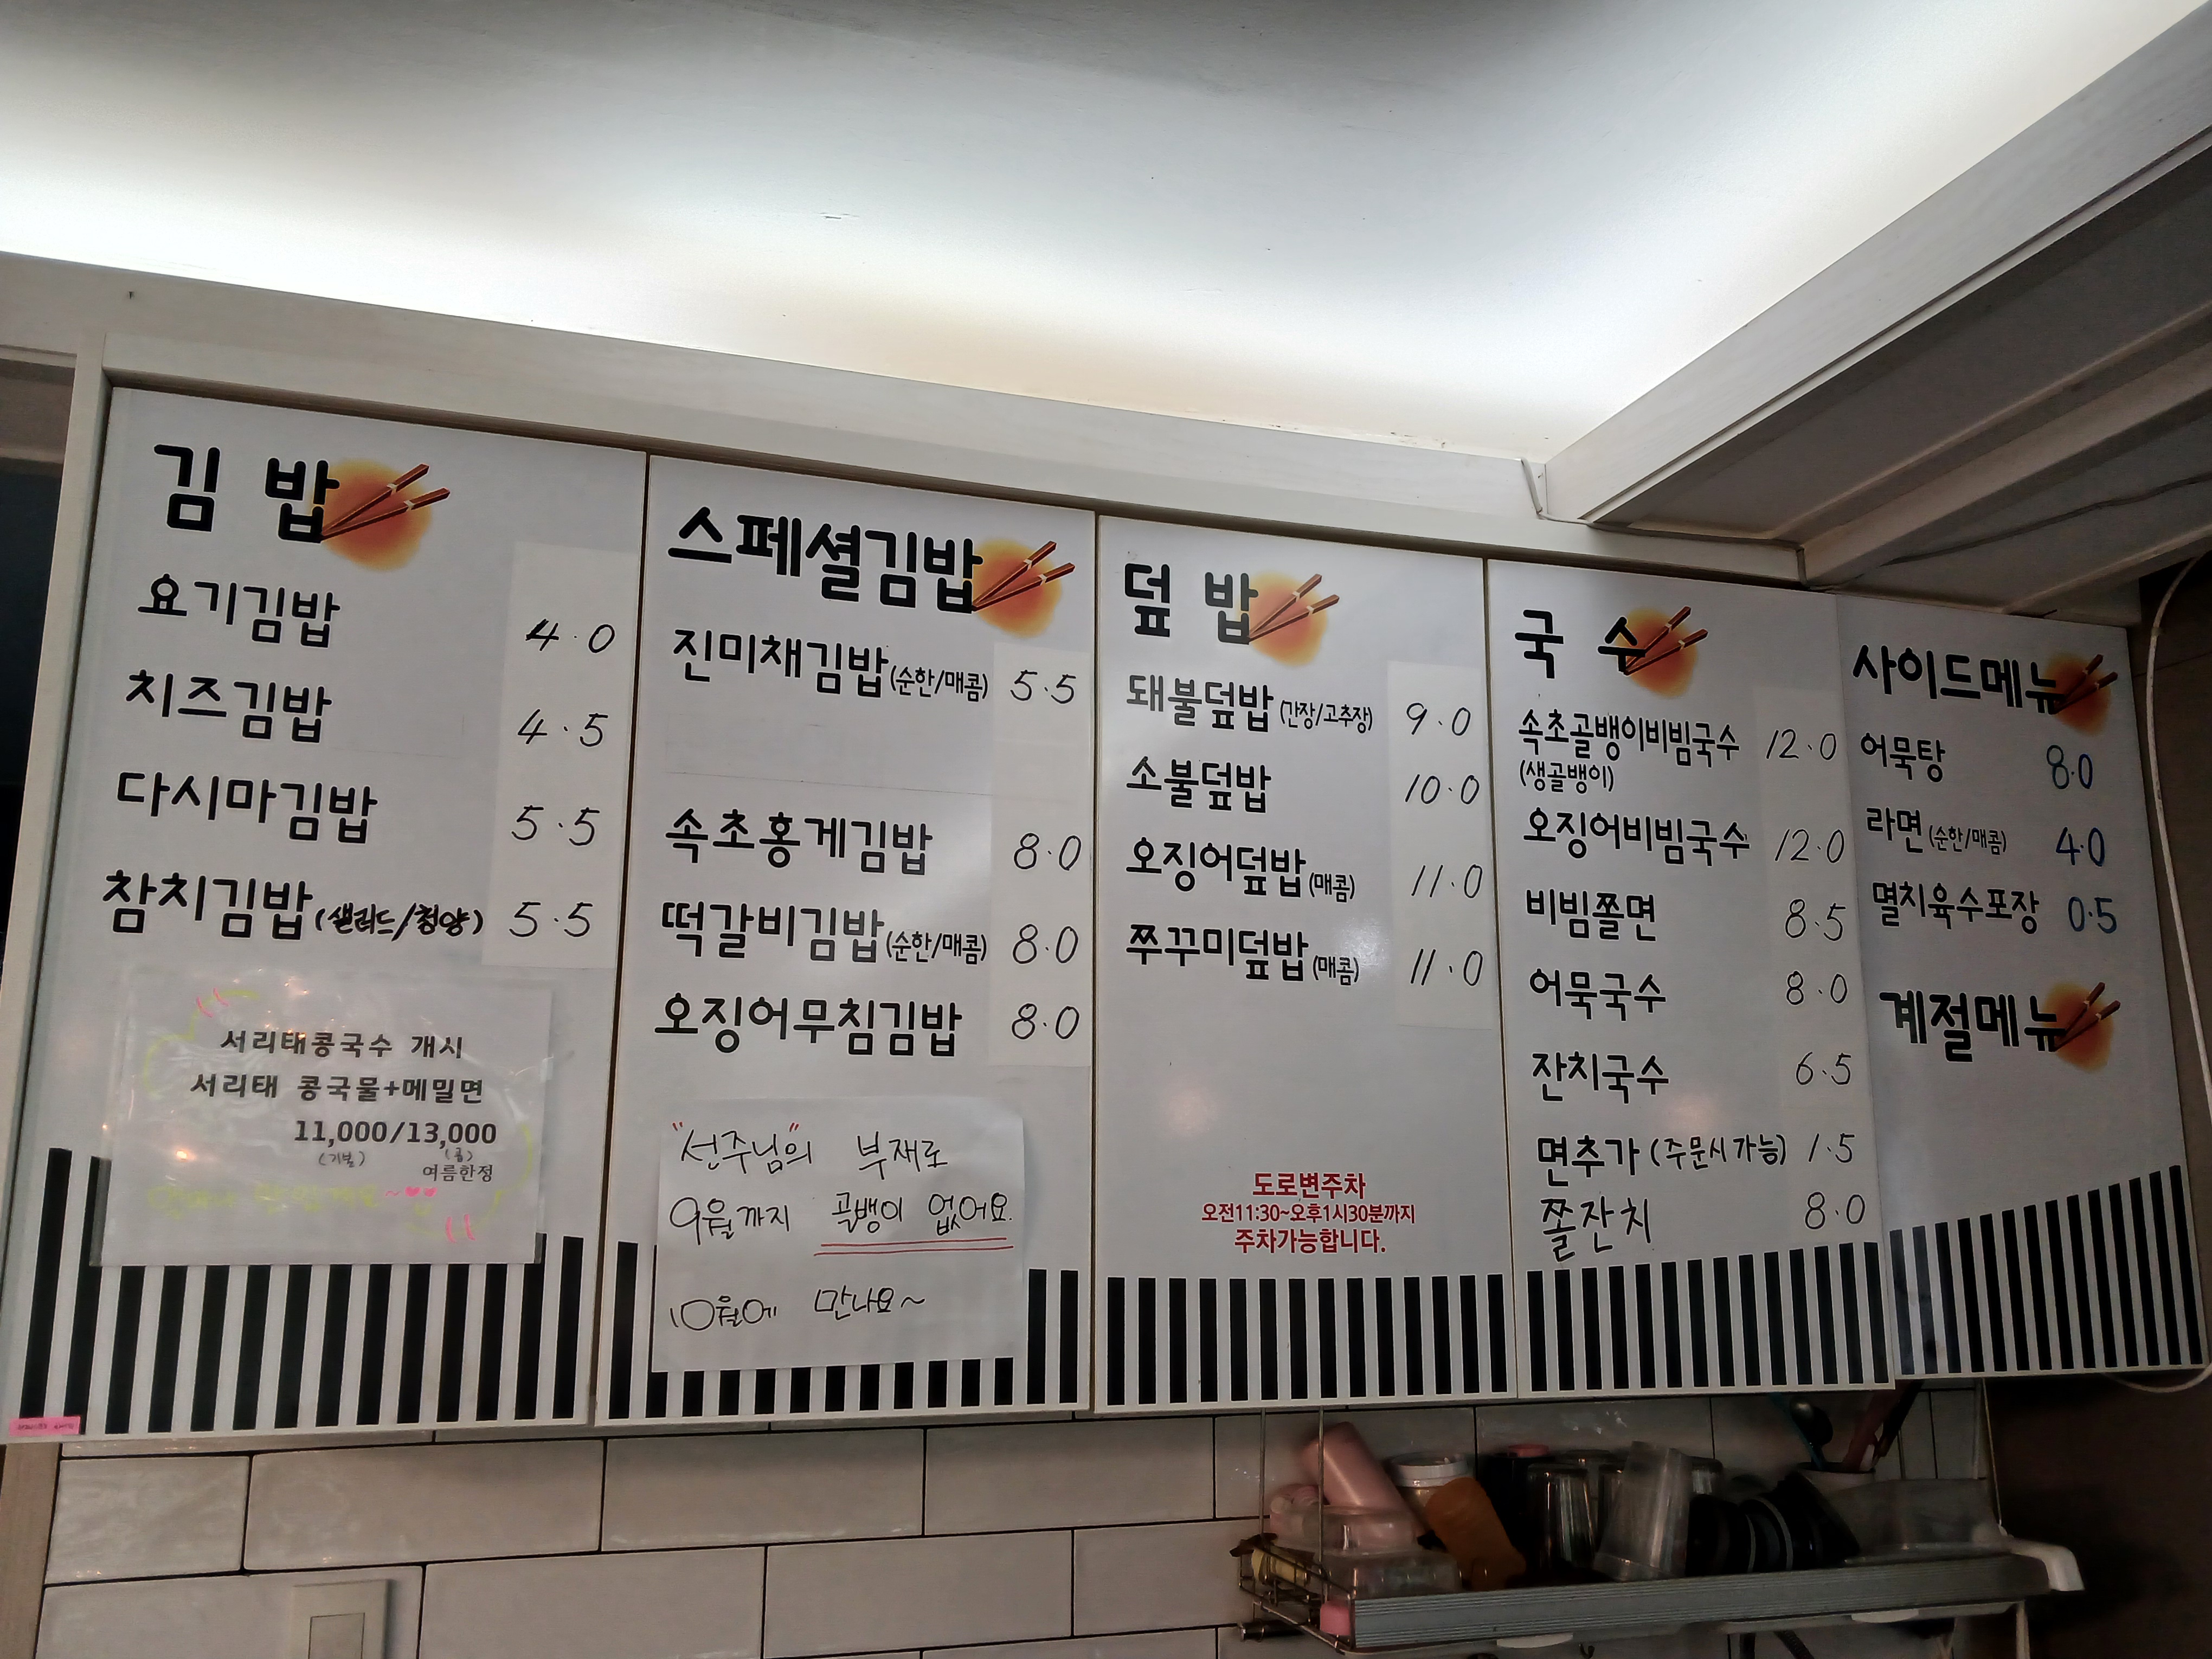 김 밥
요기김밥 4.0
치즈김밥 4.5
다시마김밥 5.5
참치김밥(샐러드/청양) 5.5
서리태콩국수 개시
서리태 콩국물+메밀면
11,000/13,000
(기본) (곱)
여름한정
스페셜김밥
진미채김밥(순한/매콤) 5.5
속초홍게김밥 8.0
떡갈비김밥(순한/매콤) 8.0
오징어무침김밥 8.0
"선주님"의 부재로
9월까지 골뱅이 없어요.
10월에 만나요~
덮 밥
돼불덮밥(간장/고추장) 9.0
소불덮밥 10.0
오징어덮밥(매콤) 11.0
쭈꾸미덮밥(매콤) 11.0
도로변주차
오전11:30~오후1시30분까지
주차가능합니다.
국 수
속초골뱅이비빔국수 12.0
(생골뱅이)
오징어비빔국수 12.0
비빔쫄면 8.5
어묵국수 8.0
잔치국수 6.5
면추가(주문시 가능) 1.5
쫄잔치 8.0
사이드메뉴
어묵탕 8.0
라면(순한/매콤) 4.0
멸치육수포장 0.5
계절메뉴